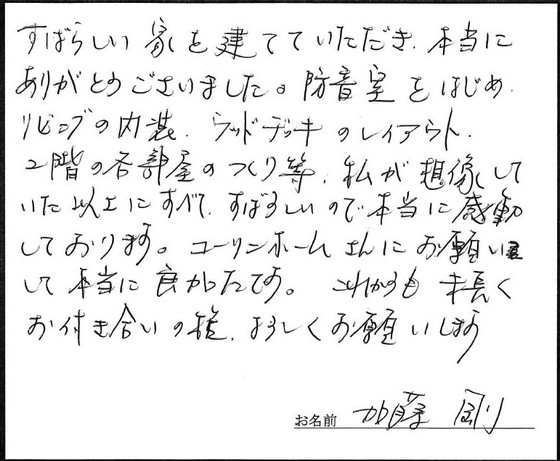 すばらしい家を建てていただき、本当に
ありがとうございました。防音室をはじめ、
リビングの内装、ウッドデッキのレイアウト、
2階の各部屋のつくり等、私が想像して
いた以上にすべて、すばらしいので本当に感動
しております。コーリンホームさんにお願い
して本当に良かったです。これからも末長く
お付き合いの程、よろしくお願いします
お名前 加藤 剛